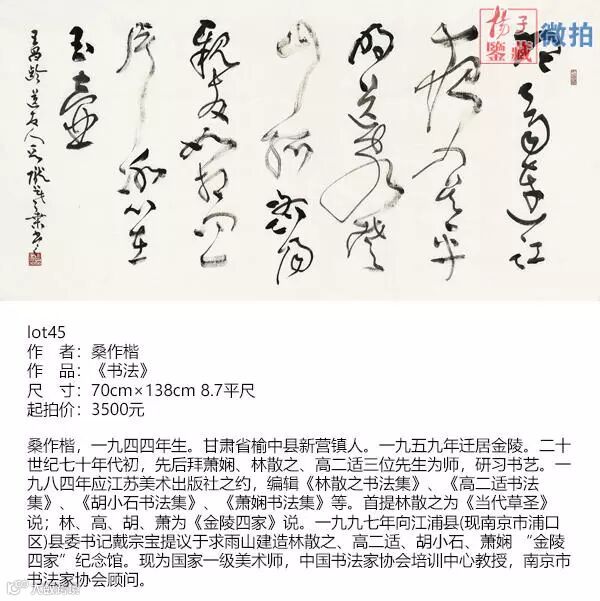 寒雨連江
夜入吴平
明送客楚
山孤洛陽
親友如相问一
片冰心在
玉壶
王昌龄送友人
楊子鑒藏
微拍
lot45
作 者：桑作楷
作 品：《书法》
尺 寸：70cm×138cm 8.7平尺
起拍价：3500元
桑作楷，一九四四年生。甘肃省榆中县新营镇人。一九五九年迁居金陵。二十
世纪七十年代初，先后拜萧娴、林散之、高二适三位先生为师，研习书艺。一
九八四年应江苏美术出版社之约，编辑《林散之书法集》、《高二适书法
集》、《胡小石书法集》、《萧娴书法集》等。首提林散之为《当代草圣》
说；林、高、胡、萧为《金陵四家》说。一九九七年向江浦县(现南京市浦口
区)县委书记戴宗宝提议于求雨山建造林散之、高二适、胡小石、萧娴 “金陵
四家”纪念馆。现为国家一级美术师，中国书法家协会培训中心教授，南京市
书法家协会顾问。